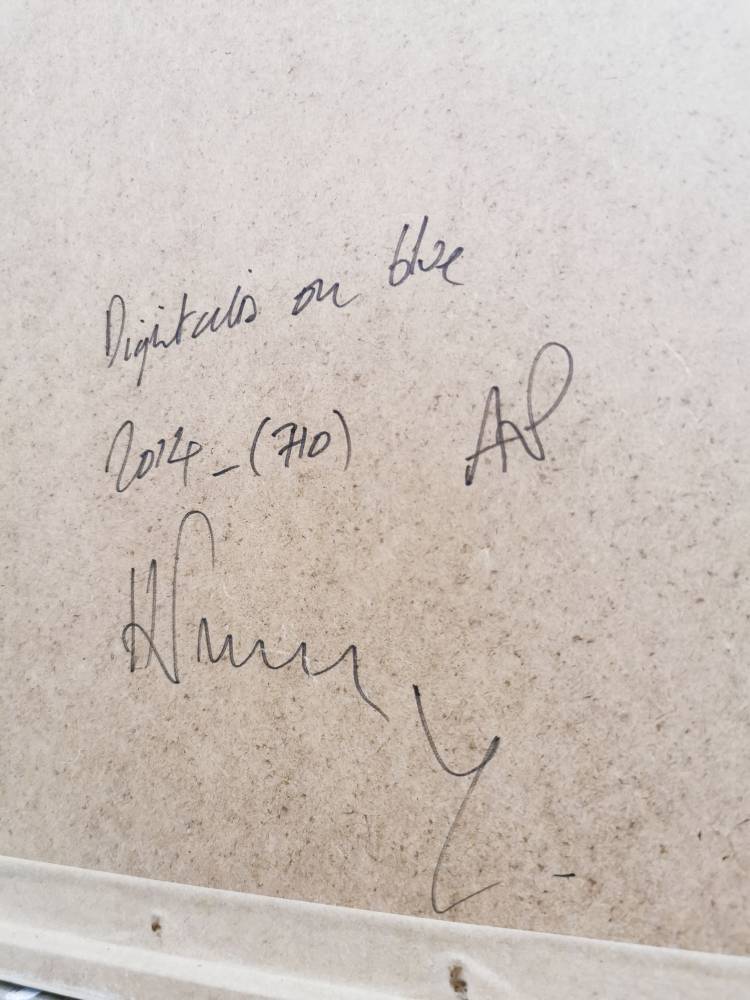 Digitalis on blue
2014 - (710) AP